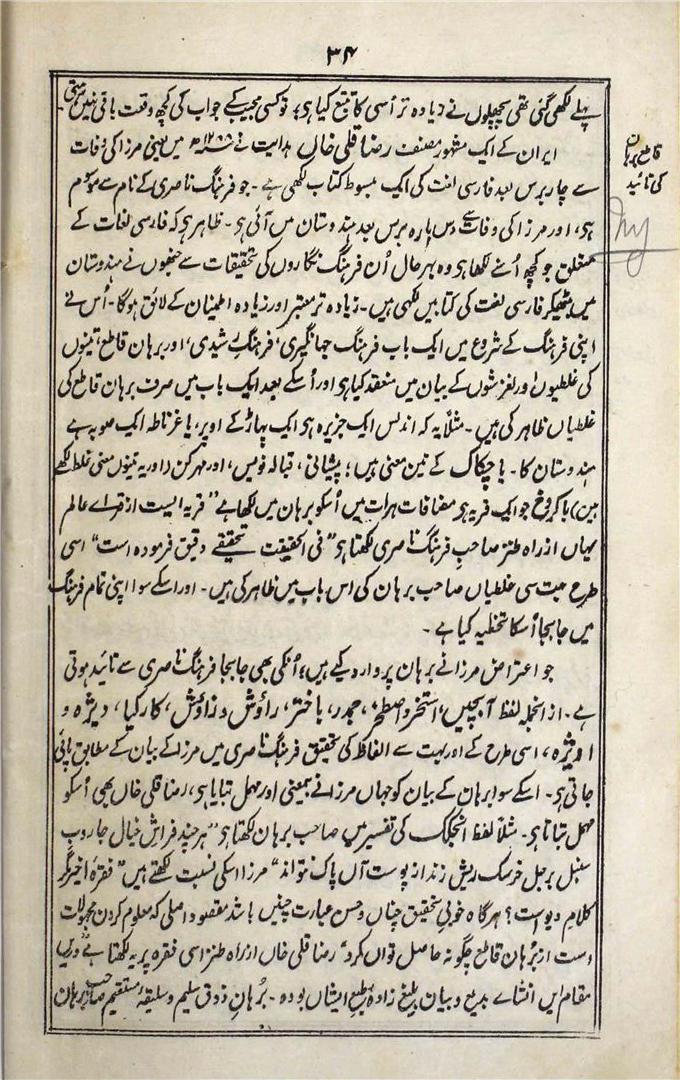 ۳۴
پہلے لکھی گئی تھی پچھلوں نے زیادہ تر اُسی کا تتبع کیا ہی؛ تو کسی مجیب کے جواب کی کچھ وقعت باقی نہیں رہتی۔
ایران کے ایک مشہور مصنف رضا قلی خاں ہدایت نے میں یعنی مرزا کی وفات
قاطع برہان
کی تائید
سے چار برس بعد فارسی لغت کی ایک مبسوط کتاب لکھی ہے۔ جو فرہنگ ناصری کے نام سے موسوم
ہی، اور مرزا کی وفات سے دس بارہ برس بعد ہندوستان میں آئی ہی۔ ظاہر ہی کہ فارسی لغات کے
متعلق جو کچھ اُسنے لکھا ہی وہ بہرحال اُن فرہنگ نگاروں کی تحقیقات سے جنھوں نے ہندوستان
میں بیٹھکر فارسی لغت کی کتابیں لکھی ہیں۔ زیادہ تر معتبر اور زیادہ اطمینان کے لائق ہوگا۔ اُس نے
اپنی فرہنگ کے شروع میں ایک باب فرہنگ جہانگیری، فرہنگ رشیدی، اور برہان قاطع، تینوں
کی غلطیوں اور لغزشوں کے بیان میں منعقد کیا ہی اور اُسکے بعد ایک باب میں صرف برہان قاطع کی
غلطیاں ظاہر کی ہیں۔ مثلاً یہ کہ اندلس ایک جزیرہ ہی ایک پہاڑ کے اوپر، یا غرناطہ ایک صوبہ ہے
ہندوستان کا۔ یا چکاک کے تین معنی ہیں؛ پیشانی، قبالہ نویس، اور مہر کن اور یہ تینوں معنی غلط لکھے
ہیں) یا کروخ جو ایک قریہ ہی مضافات ہرات میں اُسکو برہان میں لکھا ہے "قریہ ایست از قراے عالم
یہاں از راہ طنز صاحب فرہنگ ناصری لکھتا ہی "فی الحقیقت تحقیقے دقیق فرمودہ است" اسی
طرح بہت سی غلطیاں صاحب برہان کی اس باب میں ظاہر کی ہیں۔ اور اسکے سوا اپنی تمام فرہنگ
میں جابجا اُسکا تخطیہ کیا ہے۔
جو اعتراض مرزا نے برہان پر وارد کیے ہیں، اُنکی بھی جابجا فرہنگ ناصری سے تائید ہوتی
ہے۔ از انجملہ لفظ آبچیں، استخر و اصطخر، جمدر، باختر، راؤش و زاؤش، کارکیا، ویژہ و
اویژہ، اسی طرح کے اور بہت سے الفاظ کی تحقیق فرہنگ ناصری میں مرزا کے بیان کے مطابق پائی
جاتی ہی۔ اسکے سوا برہان کے بیان کو جہاں مرزا نے بیمعنی اور مہمل بتایا ہی، رضا قلی خاں بھی اُسکو
مہمل بتاتا ہی۔ مثلاً لفظ انجکک کی تفسیر میں صاحب برہان لکھتا ہی "ہر چند فراش خیال جاروب
سنبل بر جبل فرسک ریش زند از پوست آں پاک نتواند" مرزا اسکی نسبت لکھتے ہیں "فقرۂ اخیر مگر
کلام دیو است؟ ہرگاہ خوبی تحقیق چناں و حسن عبارت چنیں باشد مقصود اصلی کہ معلوم کردن مجہولات
است از برہان قاطع چگونہ حاصل تواں کرد" رضا قلی خاں از راہ طنز اسی فقرہ پر یہ لکھتا ہے "دریں
مقام ایں انشاے بدیع و بیان بلیغ زادۂ طبع ایشاں بودہ۔ برہان ذوق سلیم و سلیقۂ مستقیم صاحب برہان